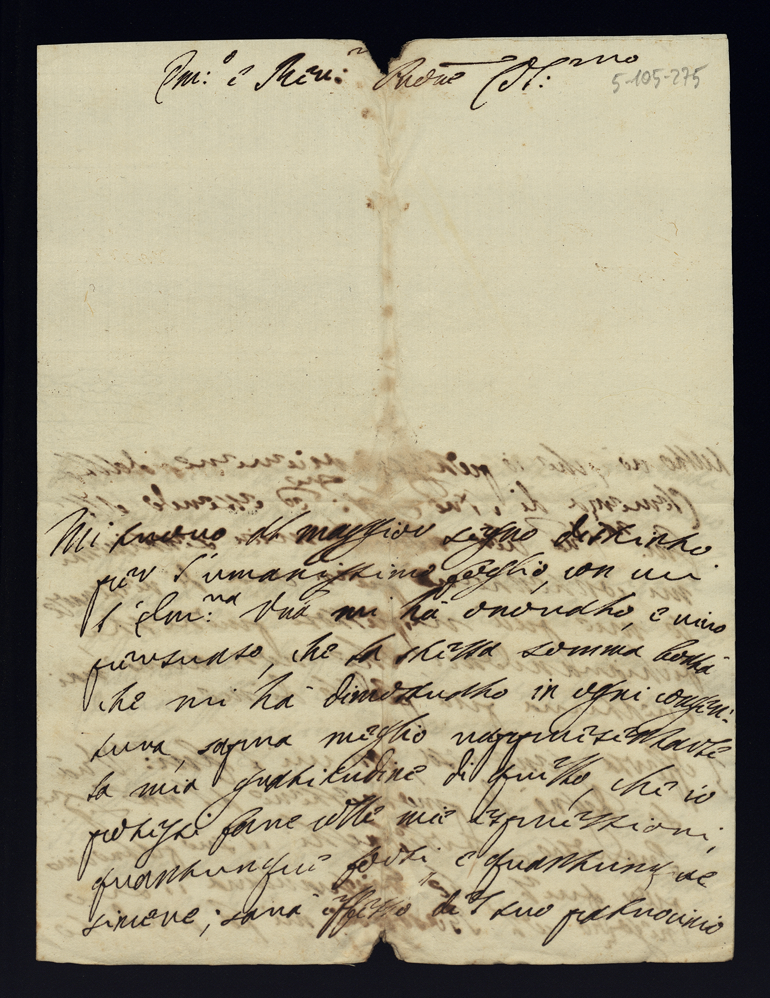 Em:o e Rev:mo Prōne Col:mo
5-105-275
Mi trovo al maggior segno distinto
per l'umanissimo foglio, con cui
l'Em:za Vrã mi hà onorato, e vivo
persuaso, che la stessa somma bontà
che mi hà dimostratto in ogni congiun-
tura, saprà meglio rappresentarle
la mia gratitudine di quello, che io
potessi fare colle mie espressioni,
quantunque forti, e quantunque
sincere; sarà effetto del suo patrocinio